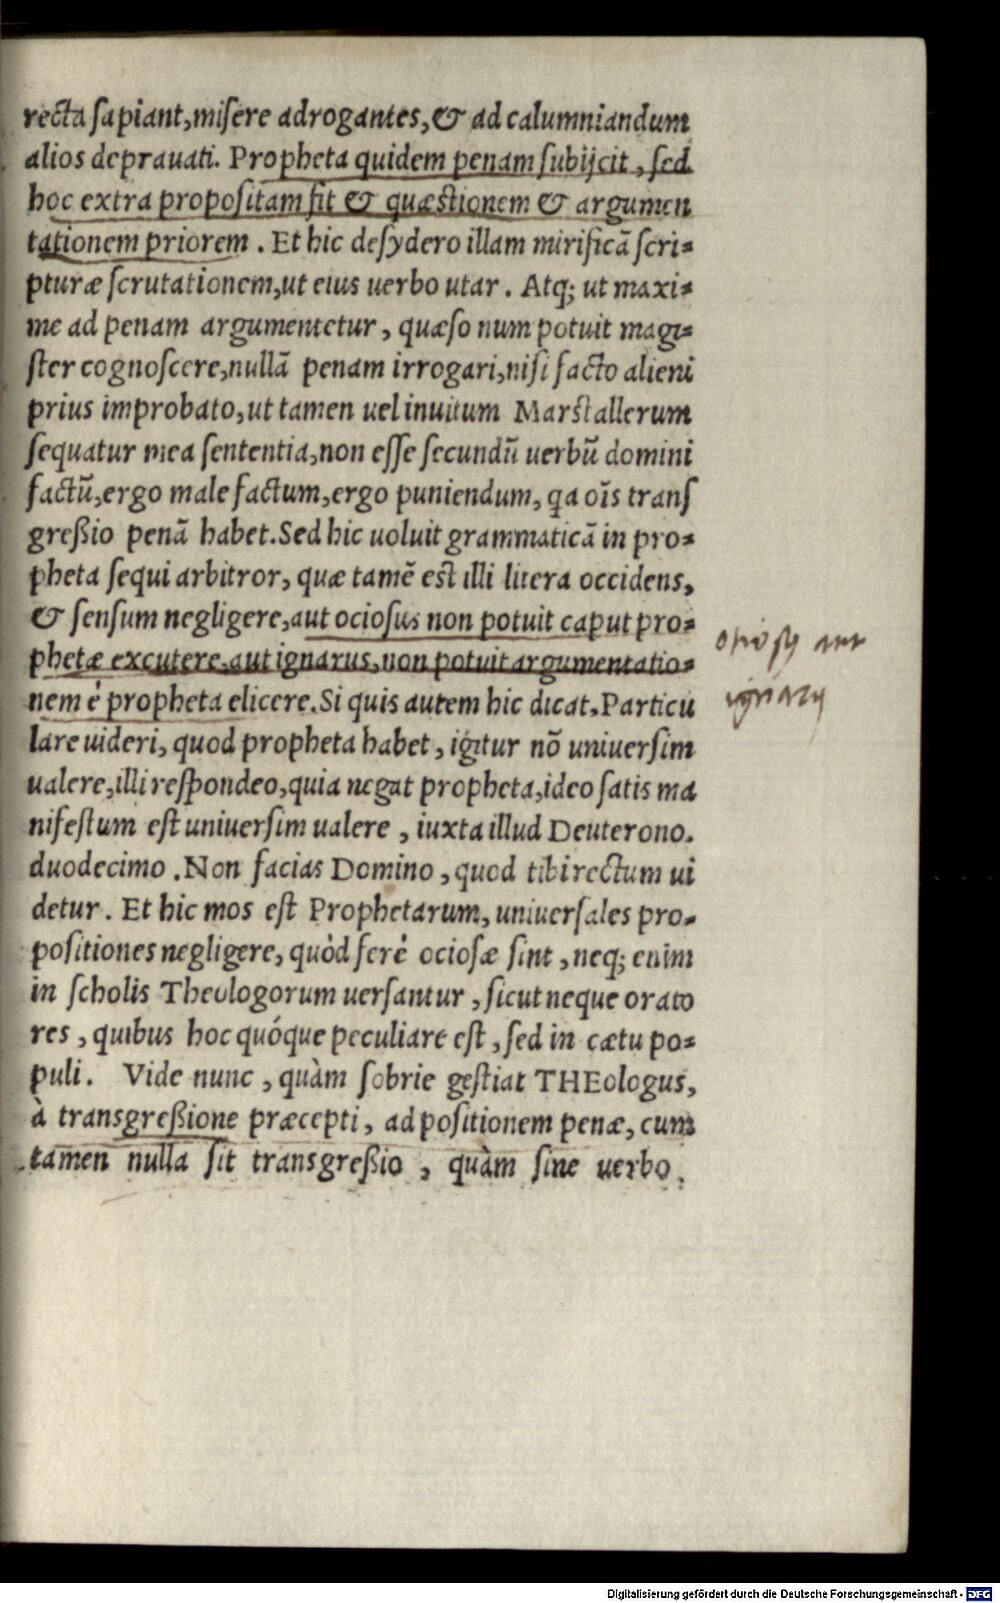 recta sapiant,misere adrogantes,& ad calumniandum
alios deprauati. Propheta quidem penam subijcit, sed
hoc extra propositam sit & quæstionem & argumen
tationem priorem. Et hic desydero illam mirificā scri-
pturæ scrutationem,ut eius uerbo utar. Atq; ut maxi-
me ad penam argumentetur, quæso num potuit magi-
ster cognoscere,nullā penam irrogari,nisi facto alieni
prius improbato,ut tamen uel inuitum Marstallerum
sequatur mea sententia,non esse secundū uerbū domini
factū,ergo male factum,ergo puniendum, qa oīs transſ
greßio penā habet. Sed hic uoluit grammaticā in pro-
pheta sequi arbitror, quæ tamē est illi litera occidens,
& sensum negligere,aut ociosus non potuit caput pro-
phetæ excutere,aut ignarus,non potuit argumentatio-
nem è propheta elicere. Si quis autem hic dicat, Particu
lare uideri, quod propheta habet, igitur nō uniuersim
ualere,illi respondeo,quia negat propheta,ideo satis ma
nifestum est uniuersim ualere, iuxta illud Deuterono.
duodecimo. Non facias Domino, quod tibi rectum ui
detur. Et hic mos est Prophetarum, uniuersales pro-
positiones negligere, quòd ferè ociosæ sint, neq; enim
in scholis Theologorum uersantur, sicut neque orato
res, quibus hoc quóque peculiare est, sed in cætu po-
puli. Vide nunc, quàm sobrie gestiat THEologus,
à transgreßione præcepti, ad positionem penæ, cum
tamen nulla sit transgreßio, quàm sine uerbo.
otiosus aut
ignarus
Digitalisierung gefördert durch die Deutsche Forschungsgemeinschaft - DFG